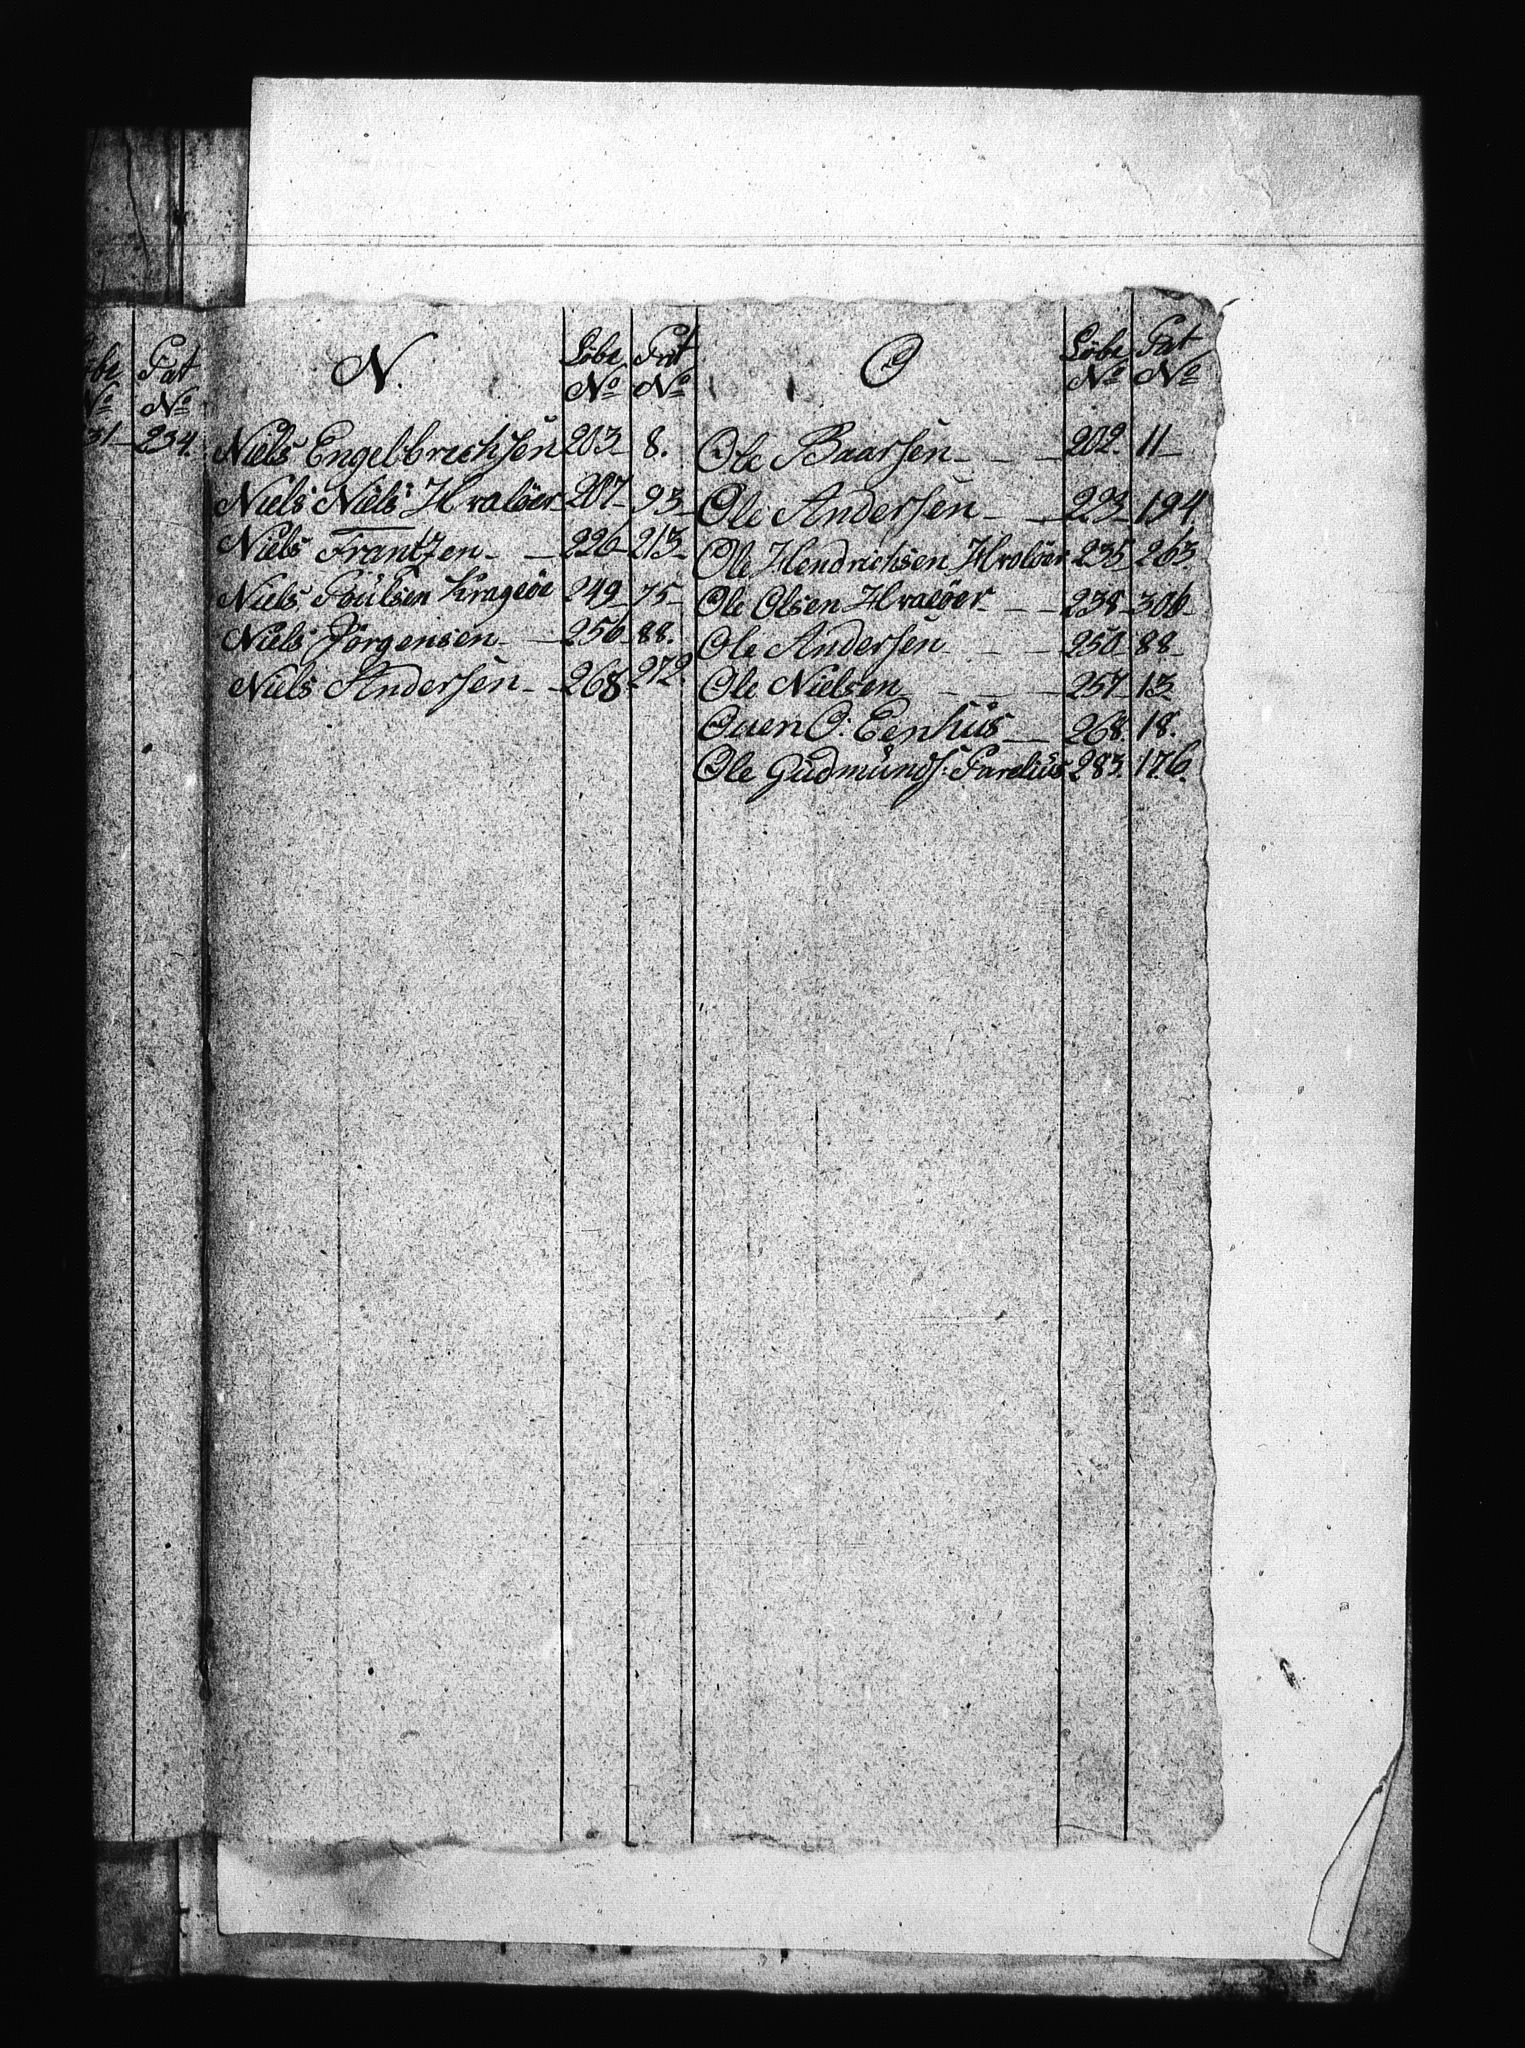 Løbe
No
Pat
No
31 234.
N.
Løbe
No
Pat
No
Niels Engelbrechsen 203 8.
Niels Niels Hvaløer 207 93
Niels Frantzen 226 213
Niels Poulsen Krageøe 249 75
Niels Jörgensen 256 88.
Niels Andersen 268 272
O
Løbe
No
Pat
No
Ole Baarsen 202. 11
Ole Andersen 223 194
Ole Hendrichsen Hvaløer 235 263
Ole Olsen Hvaløer 238 306
Ole Andersen 250 88
Ole Nielsen 257 13
Ouen O: Eenhüs 268. 18.
Ole Güdmünds: Farelius 283. 176.